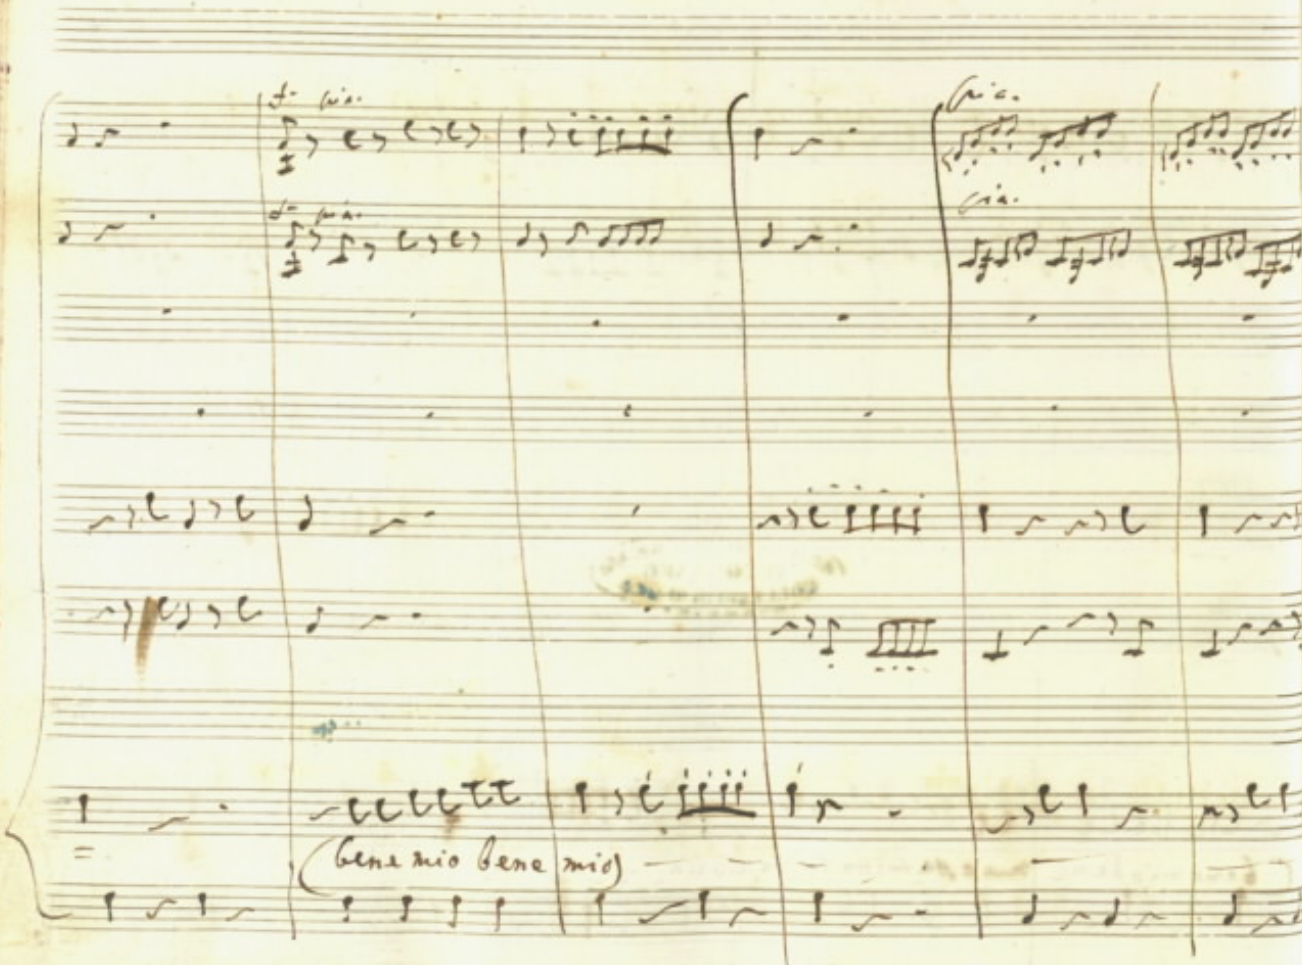 f pia.
pia.
f pia.
pia.
(bene mio bene mio)